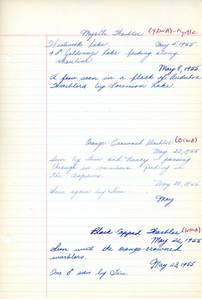 Myrtle Warbler (YRWA)-Myrtle
Westwick Lake May 5, 1955
Lake feeding along
shoreline
May 8, 1955
A few seen in a flock of Audubon
Warblers by Foreman Lake.
Orange-Crowned Warbler (OCWA)
May 22, 1955
Seen by and Nancy - passing
through in numbers feeding in
the aspens.
May 28, 1955
Seen again by
May
Black-Capped Warbler (WIWA)
May 22, 1955
Seen with the orange-crowned
warblers.
May 28, 1955
One ♂ seen by